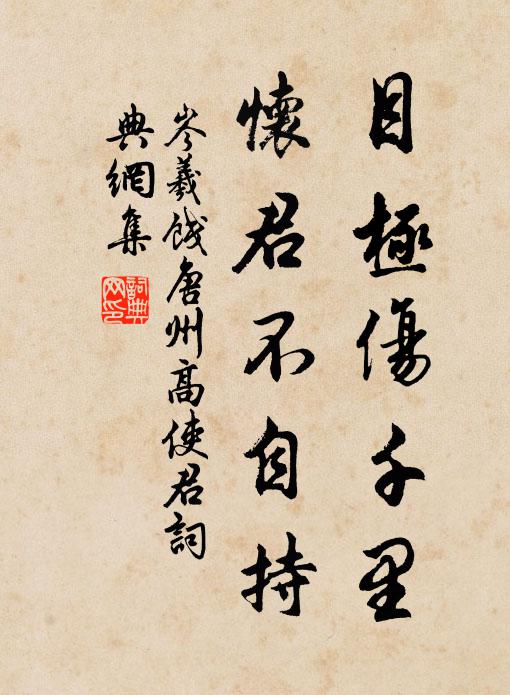 目極傷千里
懷君不自持
岑羲餞唐州高使君詞
典網集
詞典
网印